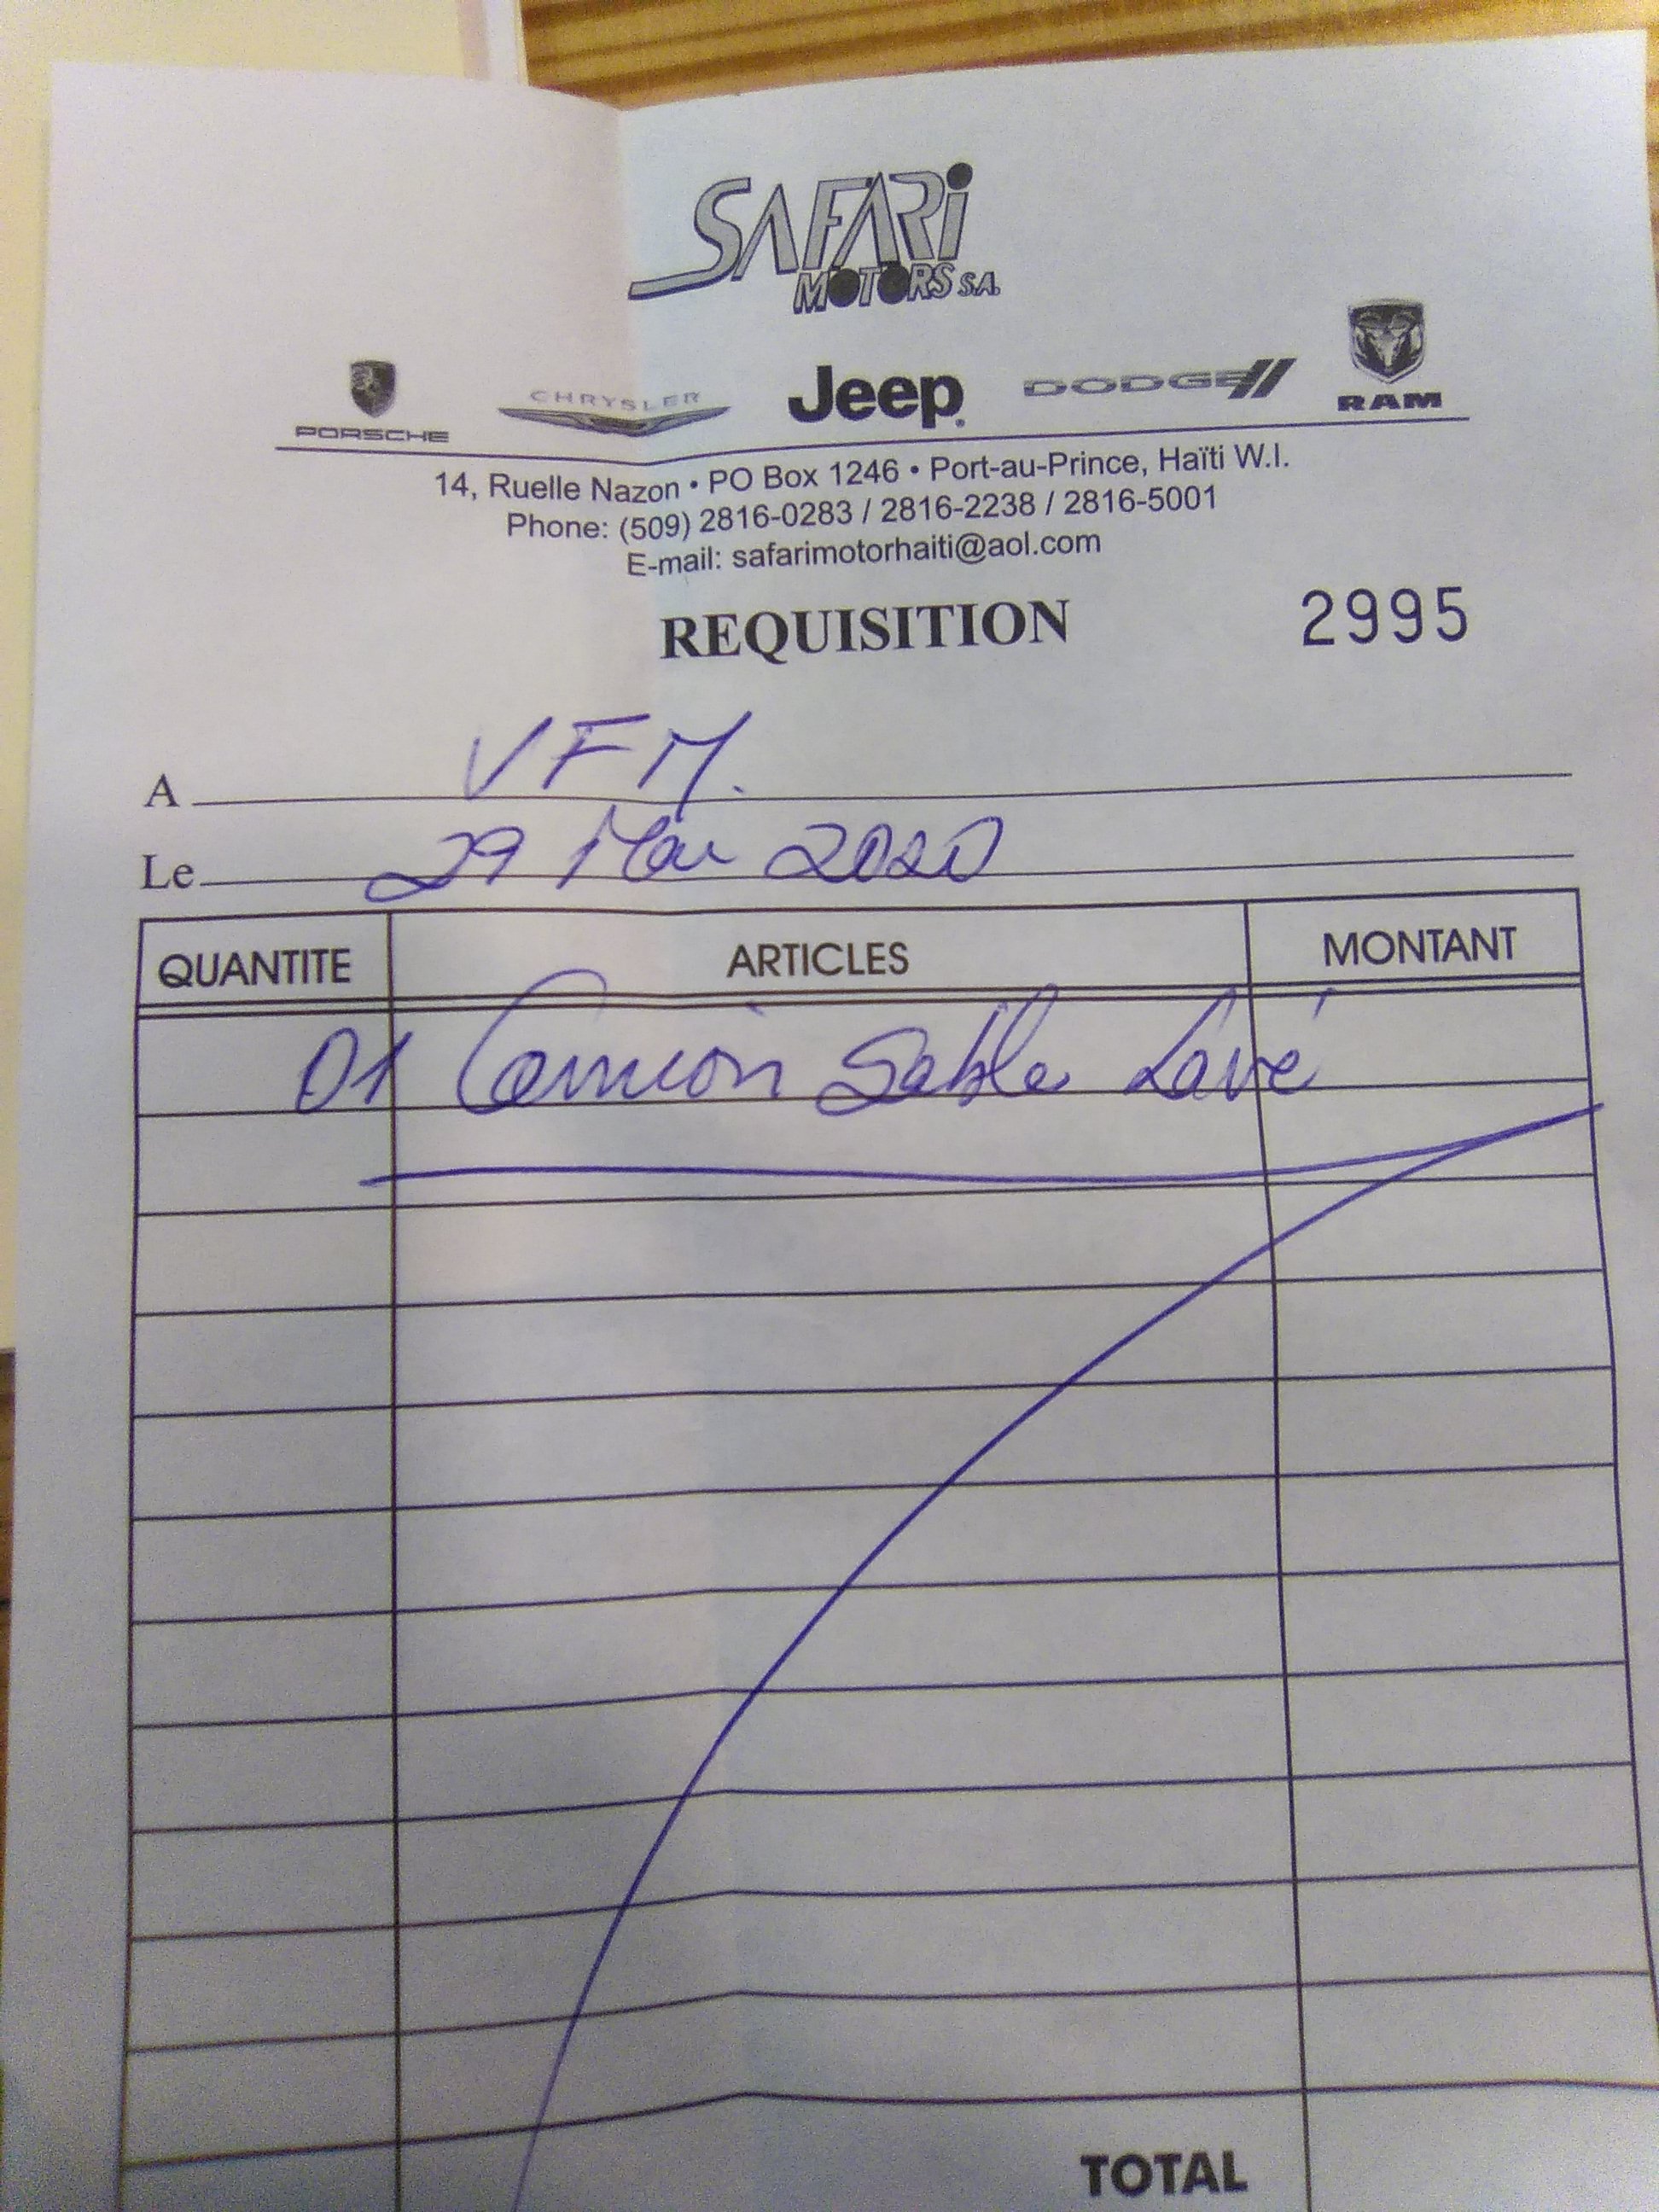 SAFARi
MOTORS S.A.
PORSCHE CHRYSLER Jeep DODGE RAM
14, Ruelle Nazon • PO Box 1246 • Port-au-Prince, Haïti W.I.
Phone: (509) 2816-0283 / 2816-2238 / 2816-5001
E-mail: safarimotorhaiti@aol.com
REQUISITION 2995
A VFM.
Le 29 Mai 2020
QUANTITE ARTICLES MONTANT
01 Camion Sable Lavé
TOTAL